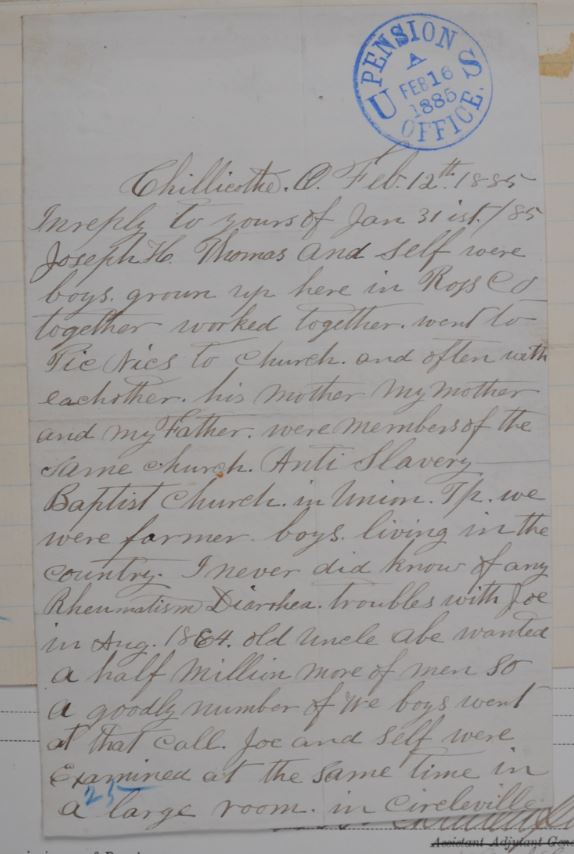 U.S. PENSION OFFICE.
A
FEB 16
1885
Chillicothe. O. Feb. 12th. 1885
In reply to yours of Jan 31 ist. /85
Joseph H. Thomas and self were
boys. groun up here in Ross CO
together worked together. went to
Pic Nics to church. and often with
eachother. his mother my mother
and my Father. were members of the
same church. Anti Slavery
Baptist Church. in Union. Tp. we
were farmer boys. living in the
country. I never did know of any
Rheumatism Diarrhea. troubles with Joe
in Aug. 1864. old Uncle abe wanted
a half Million more of men so
a goodly number of We boys went
at that call. Joe and self were
Examined at the same time in
25
a large room. in Circleville
Assistant Adjutant Gen